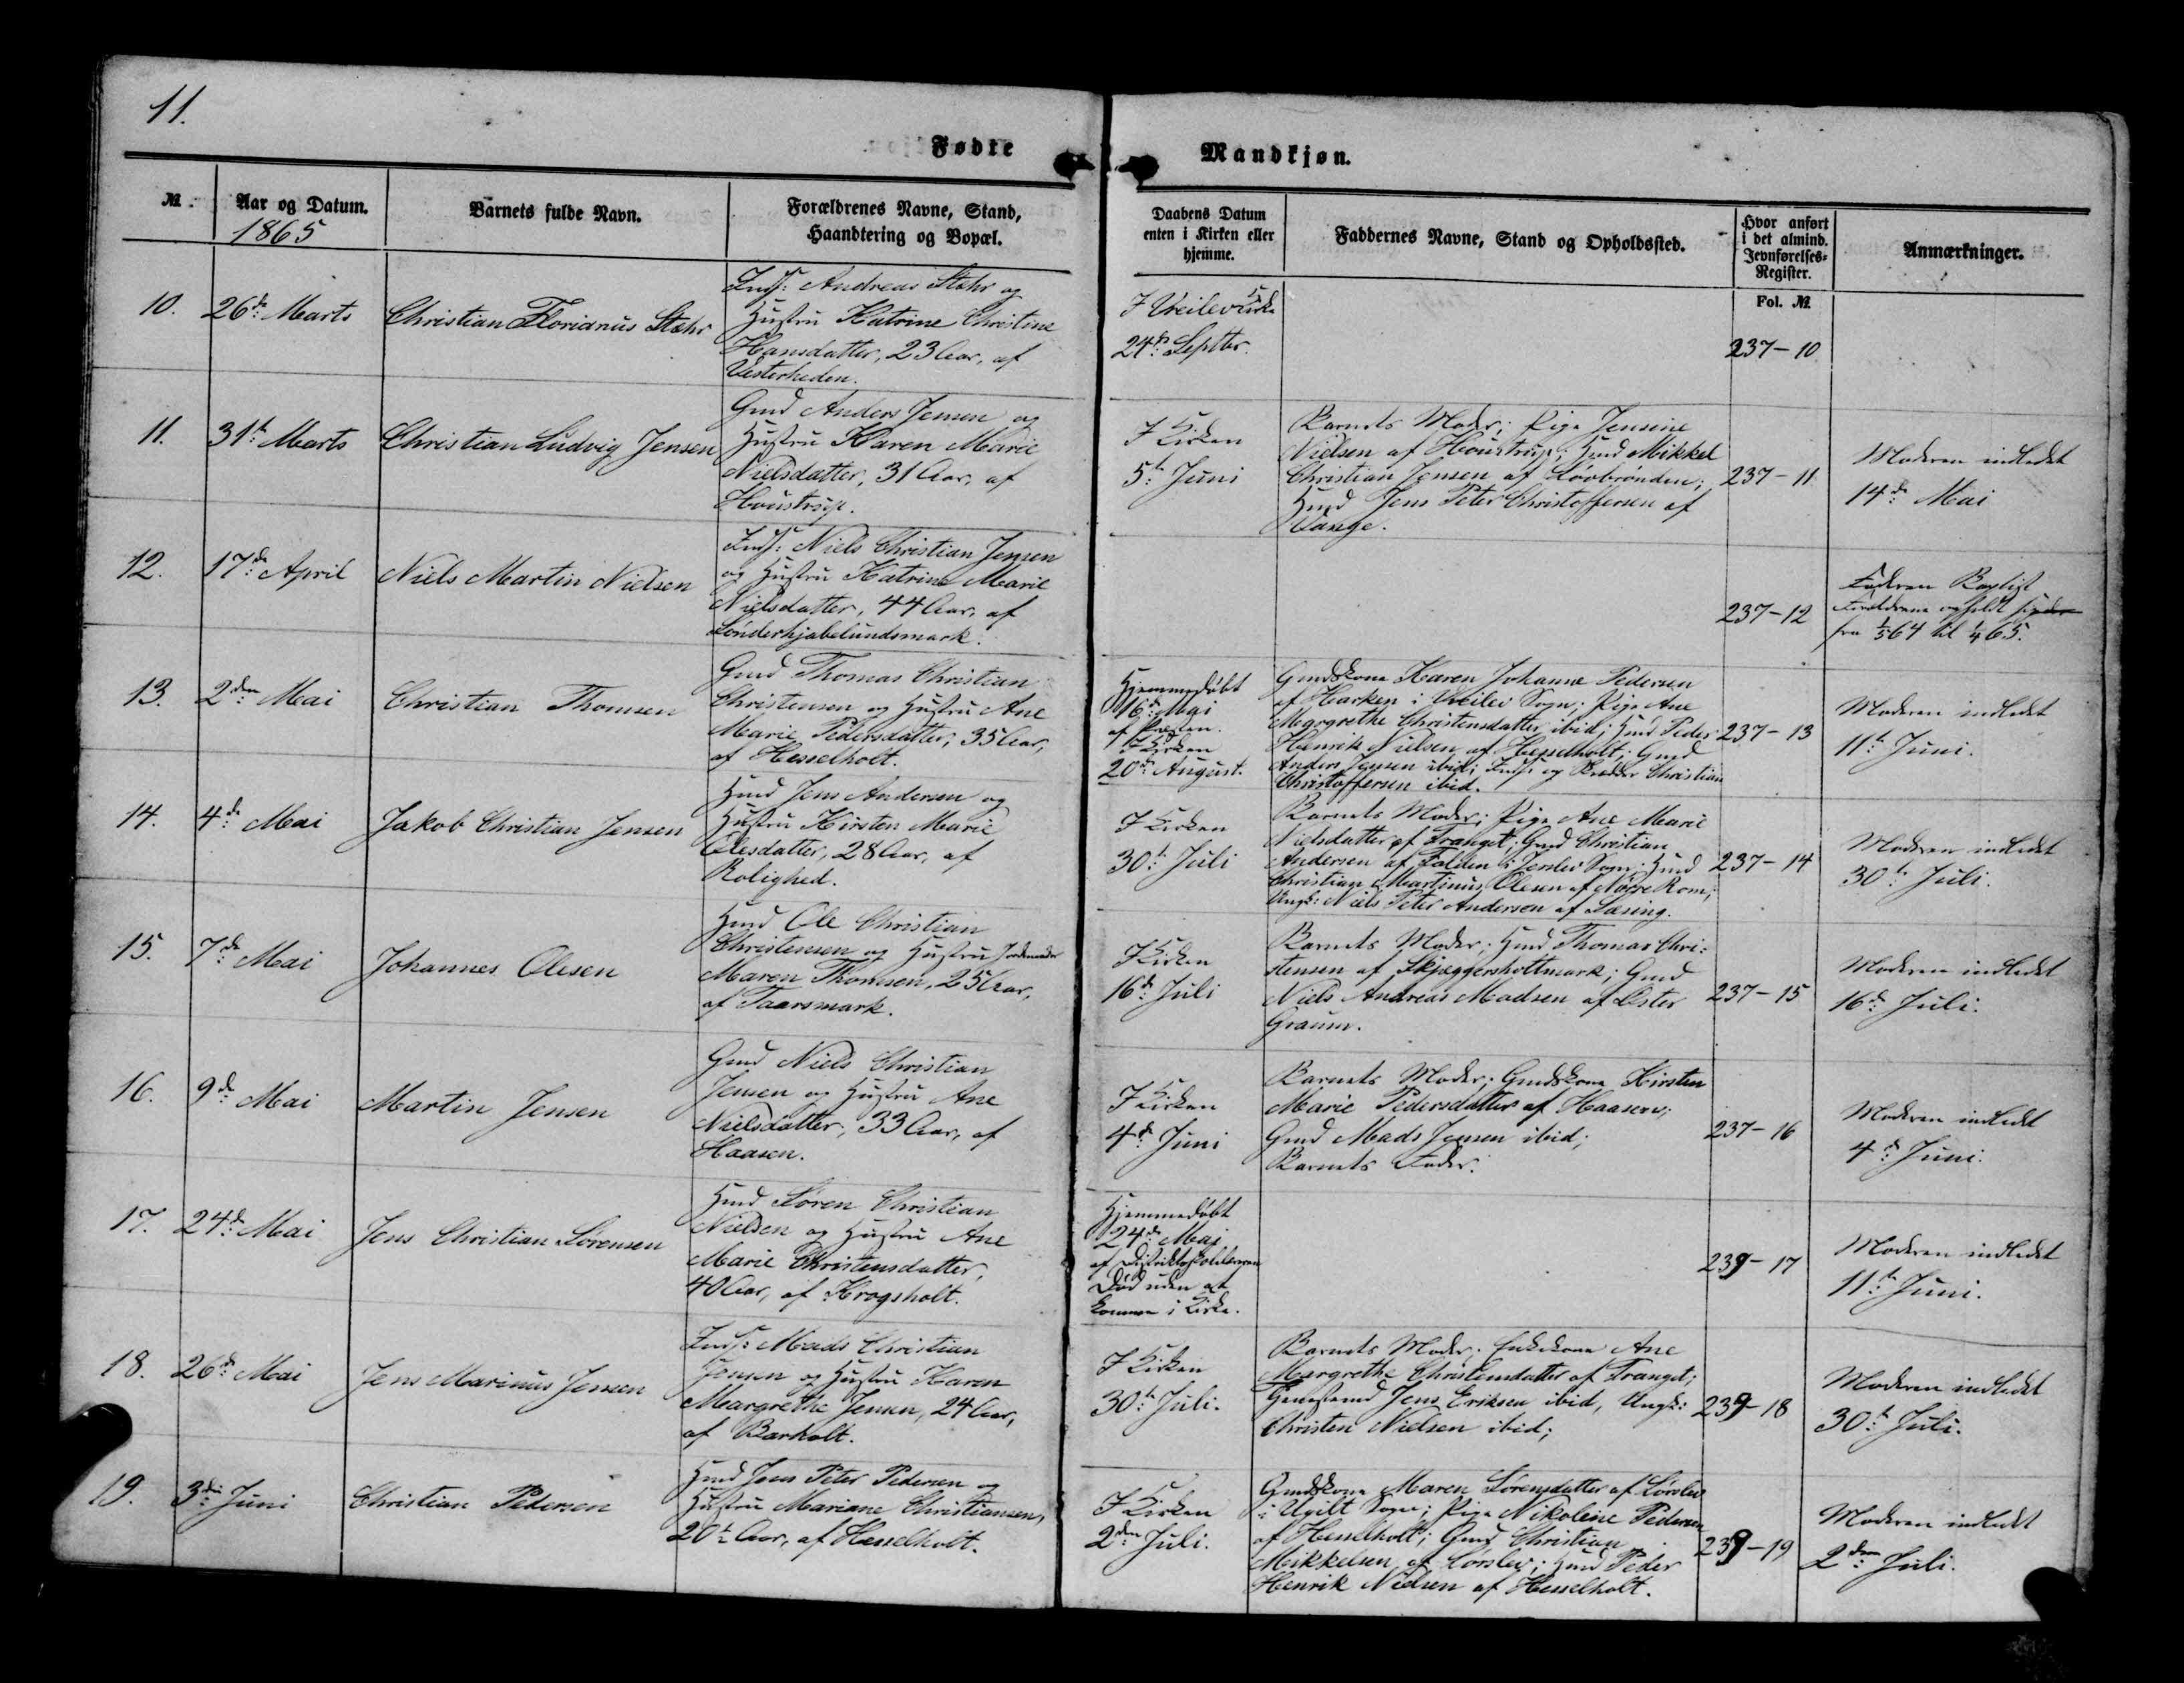 11.
Fødte
Mandkjøn.
№
Aar og Datum.
1865
Barnets fulde Navn.
Forældrenes Navne, Stand,
Haandtering og Bopæl.
Daabens Datum
enten i Kirken eller
hjemme.
Faddernes Navne, Stand og Opholdssted.
Hvor anført
i det almind.
Jevnførelses-
Register.
Fol. №
Anmærkninger.
10.
26d: Marts
Christian Florianus Stæhr
Inds: Andreas Stæhr og
Hustru Katrine Christine
Hansdatter, 23 Aar, af
Vesterheden.
I Vreilev Kirke
24d: Septbr.
237-10
11.
31t: Marts
Christian Ludvig Jensen
Gmd Anders Jensen og
Hustru Karen Marie
Nielsdatter, 31 Aar, af
Houstrup.
I Kirken
5t: Juni
Barnets Moder; Pige Jensine
Nielsen af Houstrup; Hmd Mikkel
Christian Jensen af Løvbrønden;
Hmd Jens Peter Christoffersen af
Vange.
237-11
Moderen indledet
14d: Mai
12.
17d: April
Niels Martin Nielsen
Inds: Niels Christian Jensen
og Hustru Katrine Marie
Nielsdatter, 44 Aar, af
Sønderhjabelundsmark.
237-12
Faderen Baptist
Forældrene opholdt sig der
fra 1/5 64 til 1/4 65.
13.
2den Mai
Christian Thomsen
Gmd Thomas Christian
Christensen og Hustru Ane
Marie Pedersdatter, 35 Aar,
af Hesselholt.
Hjemmedøbt
16d: Mai
af Præsten.
I Kirken
20d: August.
Gmdskone Karen Johanne Pedersen
af Harken i Vreilev Sogn; Pige Ane
Margrethe Christensdatter ibid; Hmd Peder
Henrik Nielsen af Hesselholt; Gmd
Anders Jensen ibid; Inds: og Christian
Christoffersen ibid.
237-13
Moderen indledet
11t: Juni.
14.
4d: Mai
Jakob Christian Jensen
Hmd Jens Andersen og
Hustru Kirsten Marie
Olesdatter, 28 Aar, af
Rolighed.
I Kirken
30t: Juli
Barnets Moder; Pige Ane Marie
Nielsdatter af Tranget; Gmd Christian
Andersen af Falden i Jerslev Sogn; Hmd
Christian Martinus Olesen af Nørre Rom;
Ungk: Niels Peter Andersen af Sæsing.
237-14
Moderen indledet
30t: Juli.
15.
7d: Mai
Johannes Olesen
Hmd Ole Christian
Christensen og Hustru Jordemoder
Maren Thomsen, 25 Aar,
af Taarsmark.
I Kirken
16d: Juli
Barnets Moder; Hmd Thomas Chri-
stensen af Skjæggersholtmark; Gmd
Niels Andreas Madsen af Øster
Graum.
237-15
Moderen indledet
16d: Juli.
16.
9d: Mai
Martin Jensen
Gmd Niels Christian
Jensen og Hustru Ane
Nielsdatter, 33 Aar, af
Haasen.
I Kirken
4d: Juni
Barnets Moder; Gmdskone Kirsten
Marie Pedersdatter af Haasen;
Gmd Mads Jensen ibid;
Barnets Fader.
237-16
Moderen indledet
4d: Juni.
17.
24d: Mai
Jens Christian Sørensen
Hmd Søren Christian
Nielsen og Hustru Ane
Marie Christensdatter,
40 Aar, af Krogsholt.
Hjemmedøbt
24d: Mai
af Distriktsskolelæreren
Død uden at
komme i Kirke.
239-17
Moderen indledet
11t: Juni.
18.
26d: Mai
Jens Marinus Jensen
Inds: Mads Christian
Jensen og Hustru Karen
Margrethe Jensen, 24 Aar,
af Barholt.
I Kirken
30t: Juli.
Barnets Moder; Enkekone Ane
Margrethe Christensdatter af Tranget;
Jens Eriksen ibid, Ungk:
Christen Nielsen ibid;
239-18
Moderen indledet
30t: Juli.
19.
3die Juni
Christian Pedersen
Hmd Jens Peter Pedersen og
Hustru Mariane Christiansen,
20 Aar, af Hesselholt.
I Kirken
2den Juli.
Gmdskone Maren Sørensdatter af Sørslev
i Ugilt Sogn; Pige Nikoleine Pedersen
af Hesselholt; Gmd Christian
Mikkelsen af Sørslev; Hmd Peder
Henrik Nielsen af Hesselholt.
239-19
Moderen indledet
2den Juli.